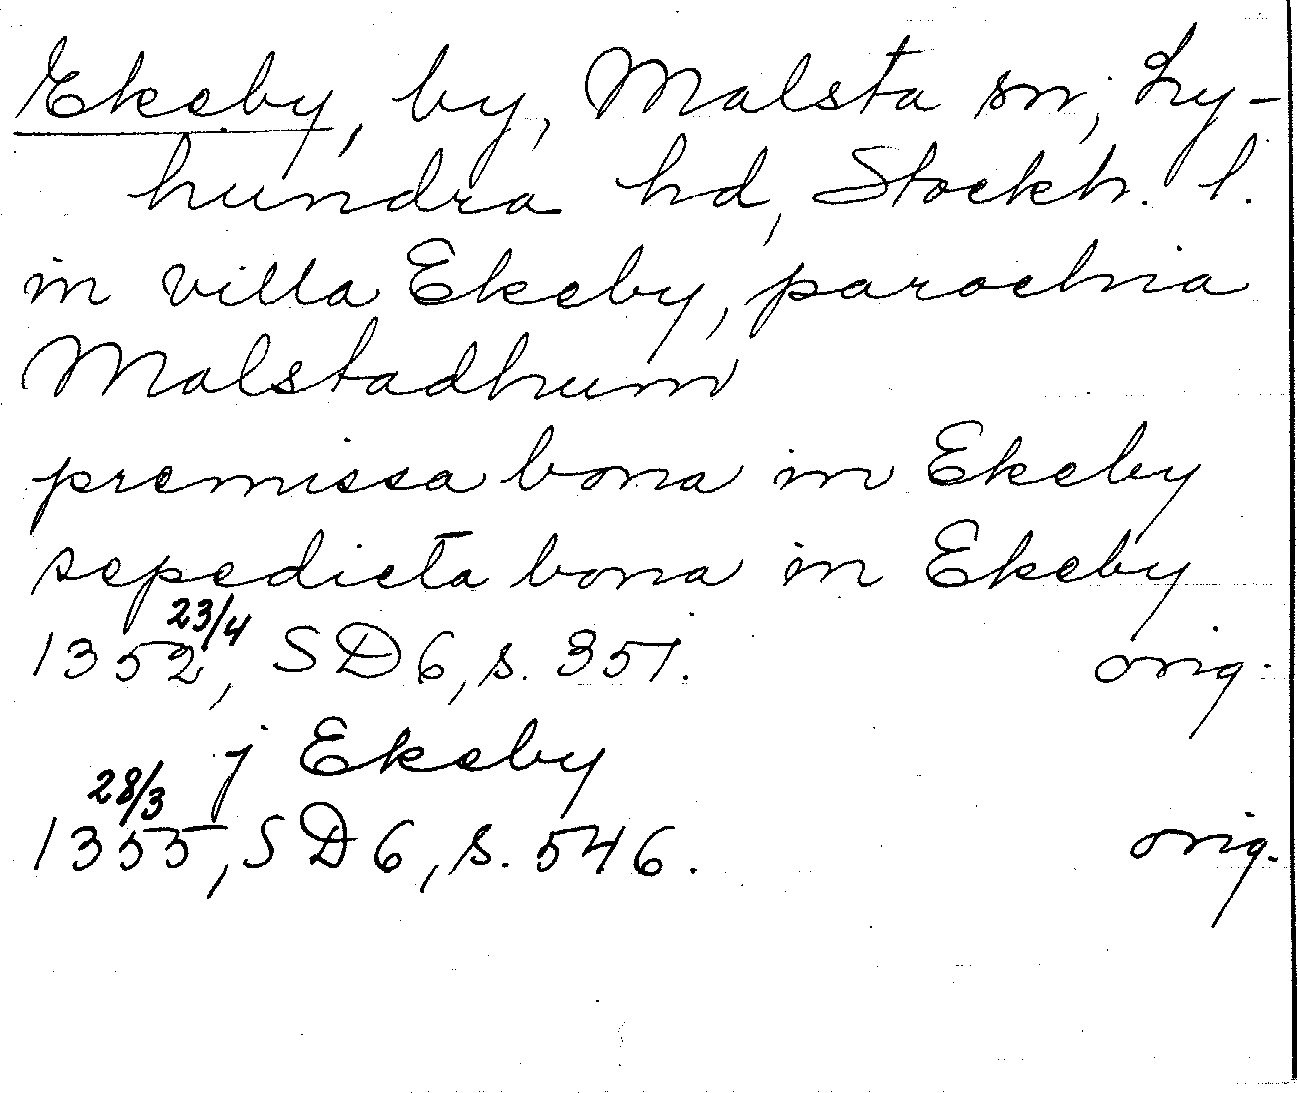 Ekeby, by, Malsta sn, Ly-
hundra hd, Stockh. l.
in villa Ekeby, parochia
Malstadhum
premissa bona in Ekeby
sepedicta bona in Ekeby
1352 23/4, SD 6, s. 351. orig.
j Ekeby
1355 28/3, SD 6, s. 546. orig.